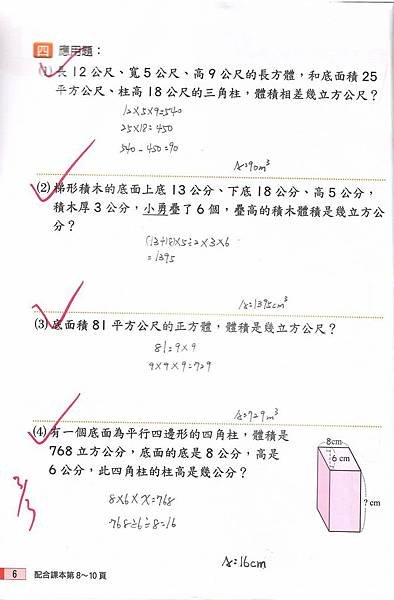 四 應用題：
(1)長12公尺、寬5公尺、高9公尺的長方體，和底面積25
平方公尺、柱高18公尺的三角柱，體積相差幾立方公尺？
12×5×9=540
25×18=450
540-450=90
A:90m³
(2)梯形積木的底面上底13公分、下底18公分、高5公分，
積木厚3公分，小勇疊了6個，疊高的積木體積是幾立方公
分？
(13+18)×5÷2×3×6
=1395
A:1395cm³
(3)底面積81平方公尺的正方體，體積是幾立方公尺？
81=9×9
9×9×9=729
A:729m³
(4)有一個底面為平行四邊形的四角柱，體積是
768立方公分，底面的底是8公分，高是
6公分，此四角柱的柱高是幾公分？
8cm
6 cm
? cm
8×6×x=768
768÷6÷8=16
3/3
A:16cm
6 配合課本第8～10頁